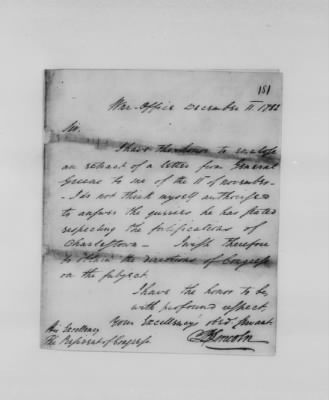 151
War Office December 11 1782
Sir.
I have the honor to enclose
an extract of a letter from General
Greene to me of the 11th of november.
I do not think myself authorised
to answer the queries he has stated
respecting the fortifications of
Charlestown — I wish therefore
to obtain the directions of Congress
on the subject.
I have the honor to be
with profound respect,
Your Excellency's obd servant
B Lincoln
His Excellency
The President of Congress.